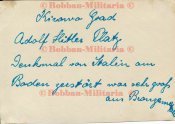 © Bobban-Militaria ©
Kirowo Grad
Adolf Hitler Platz
Denkmal von Stalin am
Boden zerstört war sehr groß
aus Bronze